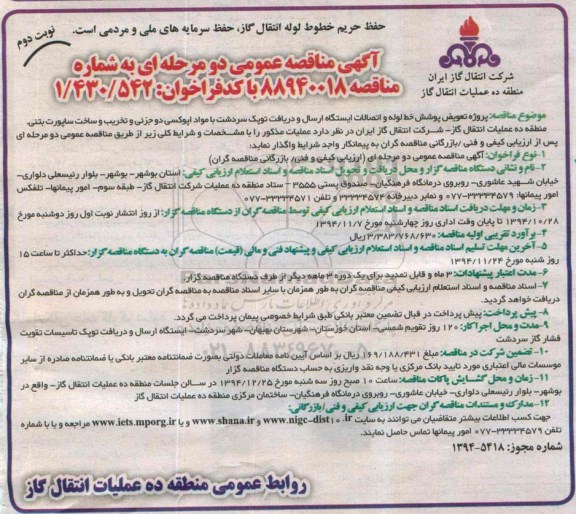 حفظ حریم خطوط لوله انتقال گاز، حفظ سرمایه های ملی و مردمی است.
نوبت دوم
شرکت انتقال گاز ایران
منطقه ده عملیات انتقال گاز
آگهی مناقصه عمومی دو مرحله ای به شماره
مناقصه ۸۸۹۴۰۰۱۸ با کدفراخوان: ۱/۴۳۰/۵۴۲
موضوع مناقصه: پروژه تعویض پوشش خط لوله و اتصالات ایستگاه ارسال و دریافت توپک سردشت با مواد اپوکسی دو جزئی و تخریب و ساخت ساپورت بتنی.
منطقه ده عملیات انتقال گاز- شرکت انتقال گاز ایران در نظر دارد عملیات مذکور را با مشخصات و شرایط کلی زیر از طریق مناقصه عمومی دو مرحله ای
پس از ارزیابی کیفی و فنی /بازرگانی مناقصه گران به پیمانکار واجد شرایط واگذار نماید:
۱-نوع فراخوان: آگهی مناقصه عمومی دو مرحله ای (ارزیابی کیفی و فنی/ بازرگانی مناقصه گران)
۲-نام و نشانی دستگاه مناقصه گزار و محل دریافت و تحویل اسناد مناقصه و اسناد استعلام ارزیابی کیفی: استان بوشهر- بوشهر- بلوار رئیسعلی دلواری-
خیابان شهید عاشوری- روبروی درمانگاه فرهنگیان- صندوق پستی ۳۵۵۵ – ستاد منطقه ده عملیات شرکت انتقال گاز- طبقه سوم- امور پیمانها- تلفکس
امور پیمانها: ۳۳۳۳۴۵۷۹-۰۷۷ و نمابر دبیرخانه ۳۳۳۳۴۵۷۴ و تلفن ۳۳۳۳۴۵۷۱-۰۷۷
۳-زمان و مهلت دریافت اسناد مناقصه و اسناد استعلام ارزیابی کیفی توسط مناقصه گران از دستگاه مناقصه گزار: از روز انتشار نوبت اول روز دوشنبه مورخ
۱۳۹۴/۱۰/۲۸ تا پایان وقت اداری روز چهارشنبه مورخ ۱۳۹۴/۱۱/۷
۴-برآورد تقریبی اولیه مناقصه: ۳/۳۸۳/۷۶۸/۶۳۰ ریال
۵-آخرین مهلت تسلیم اسناد مناقصه و اسناد استعلام ارزیابی کیفی و پیشنهاد فنی و مالی (قیمت) مناقصه گران به دستگاه مناقصه گزار: حداکثر تا ساعت ۱۵
روز شنبه مورخ ۱۳۹۴/۱۱/۲۴
۶-مدت اعتبار پیشنهادات: ۳ ماه و قابل تمدید برای یک دوره ۳ ماهه دیگر از طرف دستگاه مناقصه گزار.
۷-اسناد مناقصه و اسناد استعلام ارزیابی کیفی مناقصه گران به طور همزمان با سایر اسناد مناقصه به مناقصه گران تحویل و به طور همزمان از مناقصه گران
دریافت خواهد گردید.
۸-پیش پرداخت: پیش پرداخت در قبال تضمین معتبر بانکی طبق شرایط خصوصی پیمان پرداخت می گردد.
۹-مدت و محل اجرا کار: ۱۲۰ روز تقویم شمسی- استان خوزستان- شهرستان بهبهان- شهر سردشت- ایستگاه ارسال و دریافت توپک تاسیسات تقویت
فشار گاز سردشت
۱۰-تضمین شرکت در مناقصه: مبلغ ۱۶۹/۱۸۸/۴۳۱ ریال بر اساس آیین نامه معاملات دولتی بصورت ضمانتنامه معتبر بانکی یا ضمانتنامه صادره از سایر
موسسات مالی اعتباری مورد تایید بانک مرکزی یا وجه نقد واریزی به حساب دستگاه مناقصه گزار
۱۱-زمان و محل گشایش پاکات مناقصه: ساعت ۱۰ صبح روز سه شنبه مورخ ۱۳۹۴/۱۲/۲۵ در سالن جلسات منطقه ده عملیات انتقال گاز- واقع در
بوشهر- بلوار رئیسعلی دلواری- خیابان عاشوری- روبروی درمانگاه فرهنگیان- ساختمان مرکزی منطقه ده عملیات انتقال گاز
۱۲-مدارک و مستندات مناقصه گران جهت ارزیابی کیفی و فنی/ بازرگانی:
جهت کسب اطلاعات بیشتر متقاضیان می توانند به سایت www.nigc-dist10.ir و www.shana.ir و یا www.iets.mporg.ir مراجعه و یا با شماره
تلفن ۳۳۳۳۴۵۷۹-۰۷۷ امور پیمانها تماس حاصل نمایند.
شماره مجوز: ۵۴۱۸-۱۳۹۴
روابط عمومی منطقه ده عملیات انتقال گاز